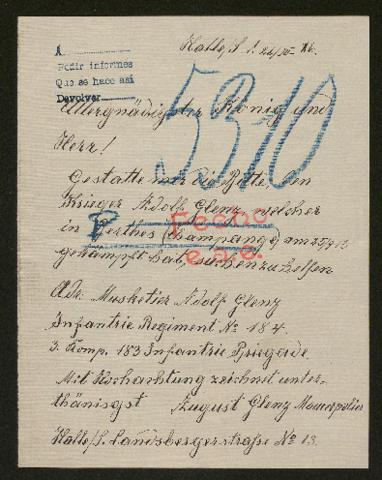 Halle/S. d. 26/10 16.
A
Pedir informes
Que se hace así
Devolver
5310
Allergnädigster König und
Herr!
Gestatte mir die Bitte den
Krieger Adolf Glenz welcher
in Perthes (Champange) am 25/9 15
Fecho
e.a.e.
gekämpft hat, suchen zu helfen
Adr. Musketier Adolf Glenz
Infantrie Regiment No 184.
3. Komp. 183 Infantrie Briegade
Mit Hochachtung zeichnet unter-
thänigst August Glenz
Halle/S. Landsbergerstraße No 13.